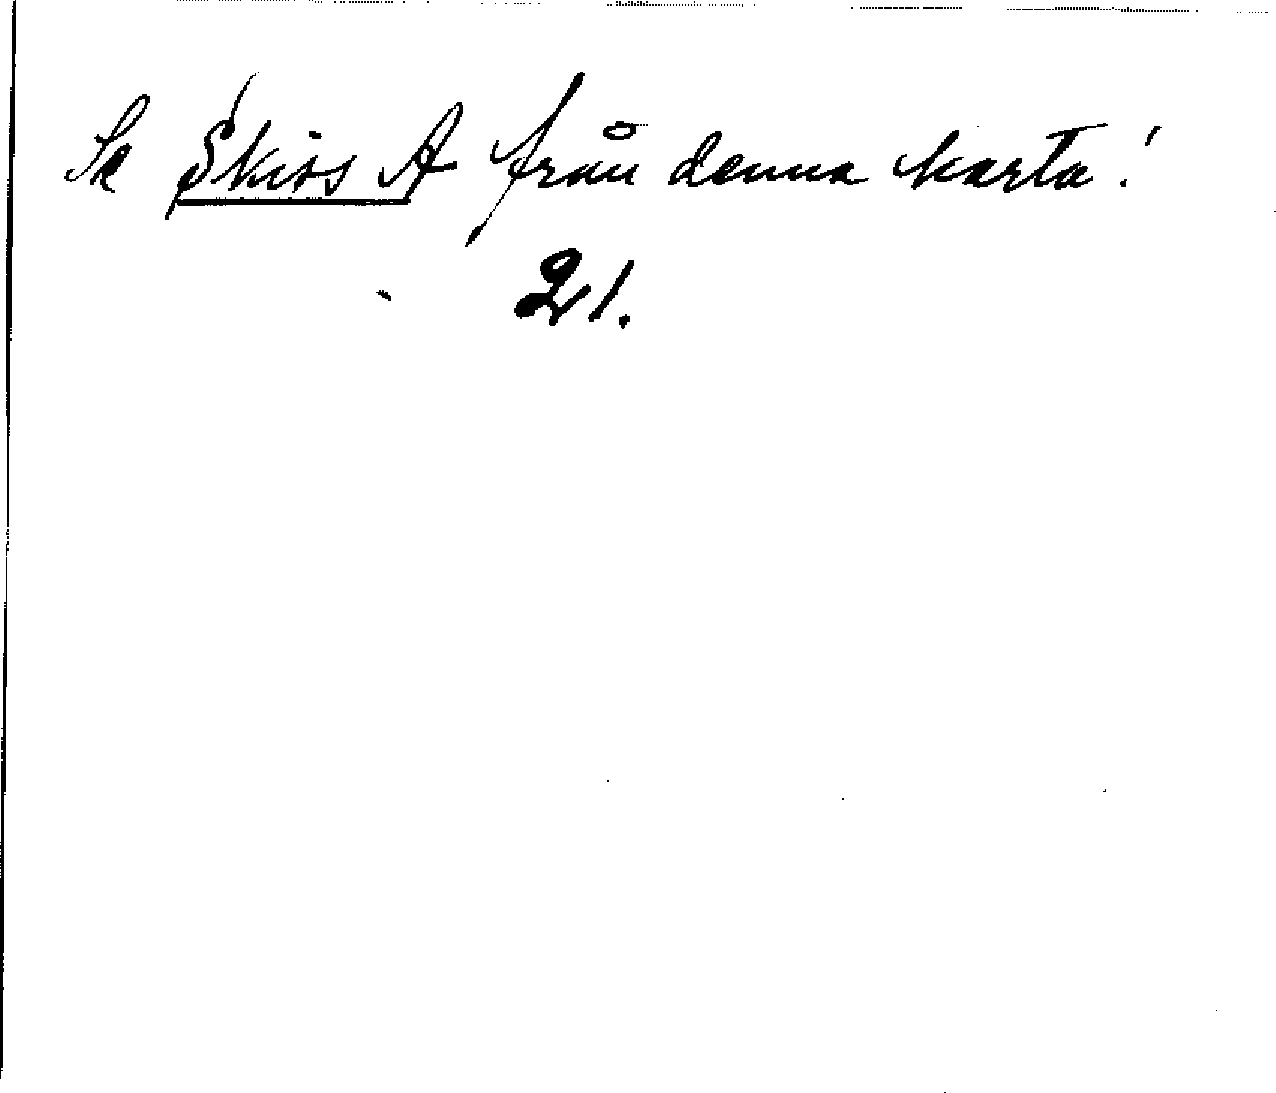 Se Skiss A från denna karta!
21.